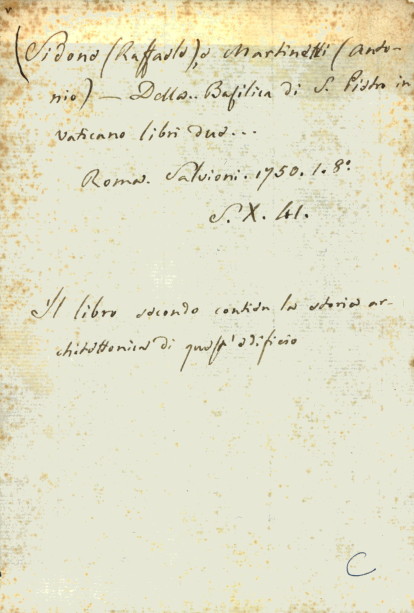 (Sidone (Raffaele), e Martinetti (Anto-
nio) — Della.. Basilica di S. Pietro in
Vaticano libri due...
Roma. Salvioni. 1750. 1. 8°.
S. X. 41.
Il libro secondo contien la storia ar-
chitettonica di quest'edificio
C